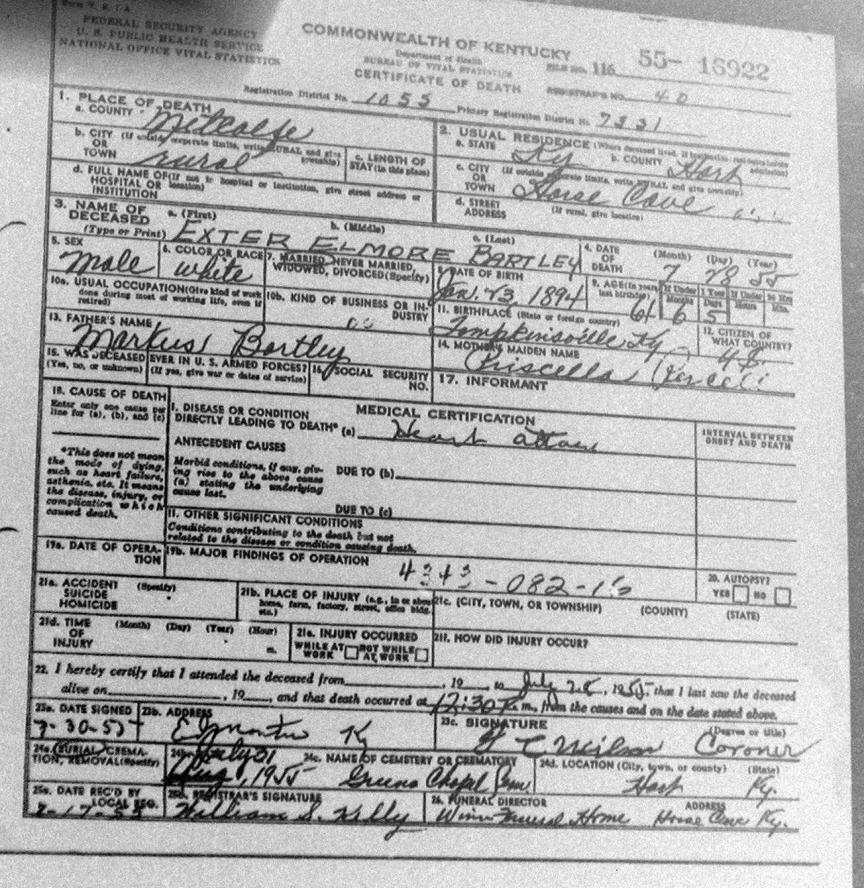 FEDERAL SECURITY AGENCY
U. S. PUBLIC HEALTH SERVICE
NATIONAL OFFICE VITAL STATISTICS
COMMONWEALTH OF KENTUCKY
Department of Health
BUREAU OF VITAL STATISTICS
CERTIFICATE OF DEATH
FILE NO. 116 55- 16922
REGISTRAR'S NO. 40
Registration District No. 1055 Primary Registration District No. 7331
1. PLACE OF DEATH
a. COUNTY Metcalfe
b. CITY (If outside corporate limits, write RURAL and give township) OR TOWN rural
c. LENGTH OF STAY (in this place)
d. FULL NAME OF (If not in hospital or institution, give street address or location) HOSPITAL OR INSTITUTION
2. USUAL RESIDENCE (Where deceased lived, if institution: residence before admission)
a. STATE Ky b. COUNTY Hart
c. CITY (If outside corporate limits, write RURAL and give township) OR TOWN Horse Cave
d. STREET ADDRESS (If rural, give location)
3. NAME OF DECEASED (Type or Print) a. (First) b. (Middle) c. (Last)
EXTER ELMORE BARTLEY
4. DATE OF DEATH (Month) (Day) (Year)
7 28 55
5. SEX Male
6. COLOR OR RACE white
7. MARRIED, NEVER MARRIED, WIDOWED, DIVORCED (Specify)
8. DATE OF BIRTH Jan. 23, 1894
9. AGE (In years last birthday) 61 If Under 1 Year Months 6 Days 5 If Under 24 Hrs Hours Min.
10a. USUAL OCCUPATION (Give kind of work done during most of working life, even if retired)
10b. KIND OF BUSINESS OR INDUSTRY
11. BIRTHPLACE (State or foreign country) Tompkinsville Ky
12. CITIZEN OF WHAT COUNTRY? US
13. FATHER'S NAME Markus Bartley
14. MOTHER'S MAIDEN NAME Priscella
15. WAS DECEASED EVER IN U. S. ARMED FORCES? (Yes, no, or unknown) (If yes, give war or dates of service)
16. SOCIAL SECURITY NO.
17. INFORMANT
18. CAUSE OF DEATH
Enter only one cause per line for (a), (b), and (c)
*This does not mean the mode of dying, such as heart failure, asthenia, etc. It means the disease, injury, or complication which caused death.
MEDICAL CERTIFICATION
I. DISEASE OR CONDITION DIRECTLY LEADING TO DEATH* (a) Heart attack
ANTECEDENT CAUSES
Morbid conditions, if any, giving rise to the above cause (a) stating the underlying cause last.
DUE TO (b)
DUE TO (c)
II. OTHER SIGNIFICANT CONDITIONS
Conditions contributing to the death but not related to the disease or condition causing death.
INTERVAL BETWEEN ONSET AND DEATH
19a. DATE OF OPERATION
19b. MAJOR FINDINGS OF OPERATION
4343-082-1
20. AUTOPSY?
YES NO
21a. ACCIDENT (Specify) SUICIDE HOMICIDE
21b. PLACE OF INJURY (e.g., in or about home, farm, factory, street, office bldg. etc.)
21c. (CITY, TOWN, OR TOWNSHIP) (COUNTY) (STATE)
21d. TIME OF INJURY (Month) (Day) (Year) (Hour) m.
21e. INJURY OCCURRED WHILE AT WORK NOT WHILE AT WORK
21f. HOW DID INJURY OCCUR?
22. I hereby certify that I attended the deceased from , 19 to July 28, 1955, that I last saw the deceased
alive on , 19 , and that death occurred at 12:30 m., from the causes and on the date stated above.
23a. DATE SIGNED 7-30-55
23b. ADDRESS Edmonton Ky
23c. SIGNATURE (Degree or title) Coroner
24a. BURIAL, CREMATION, REMOVAL (Specify)
24b. July 31 Aug 1, 1955
24c. NAME OF CEMETERY OR CREMATORY Greens Chapel Cem.
24d. LOCATION (City, town, or county) (State) Hart Ky.
25a. DATE REC'D BY LOCAL REG.
25b. REGISTRAR'S SIGNATURE William S. Kelly
26. FUNERAL DIRECTOR ADDRESS
Winn Funeral Home Horse Cave Ky.